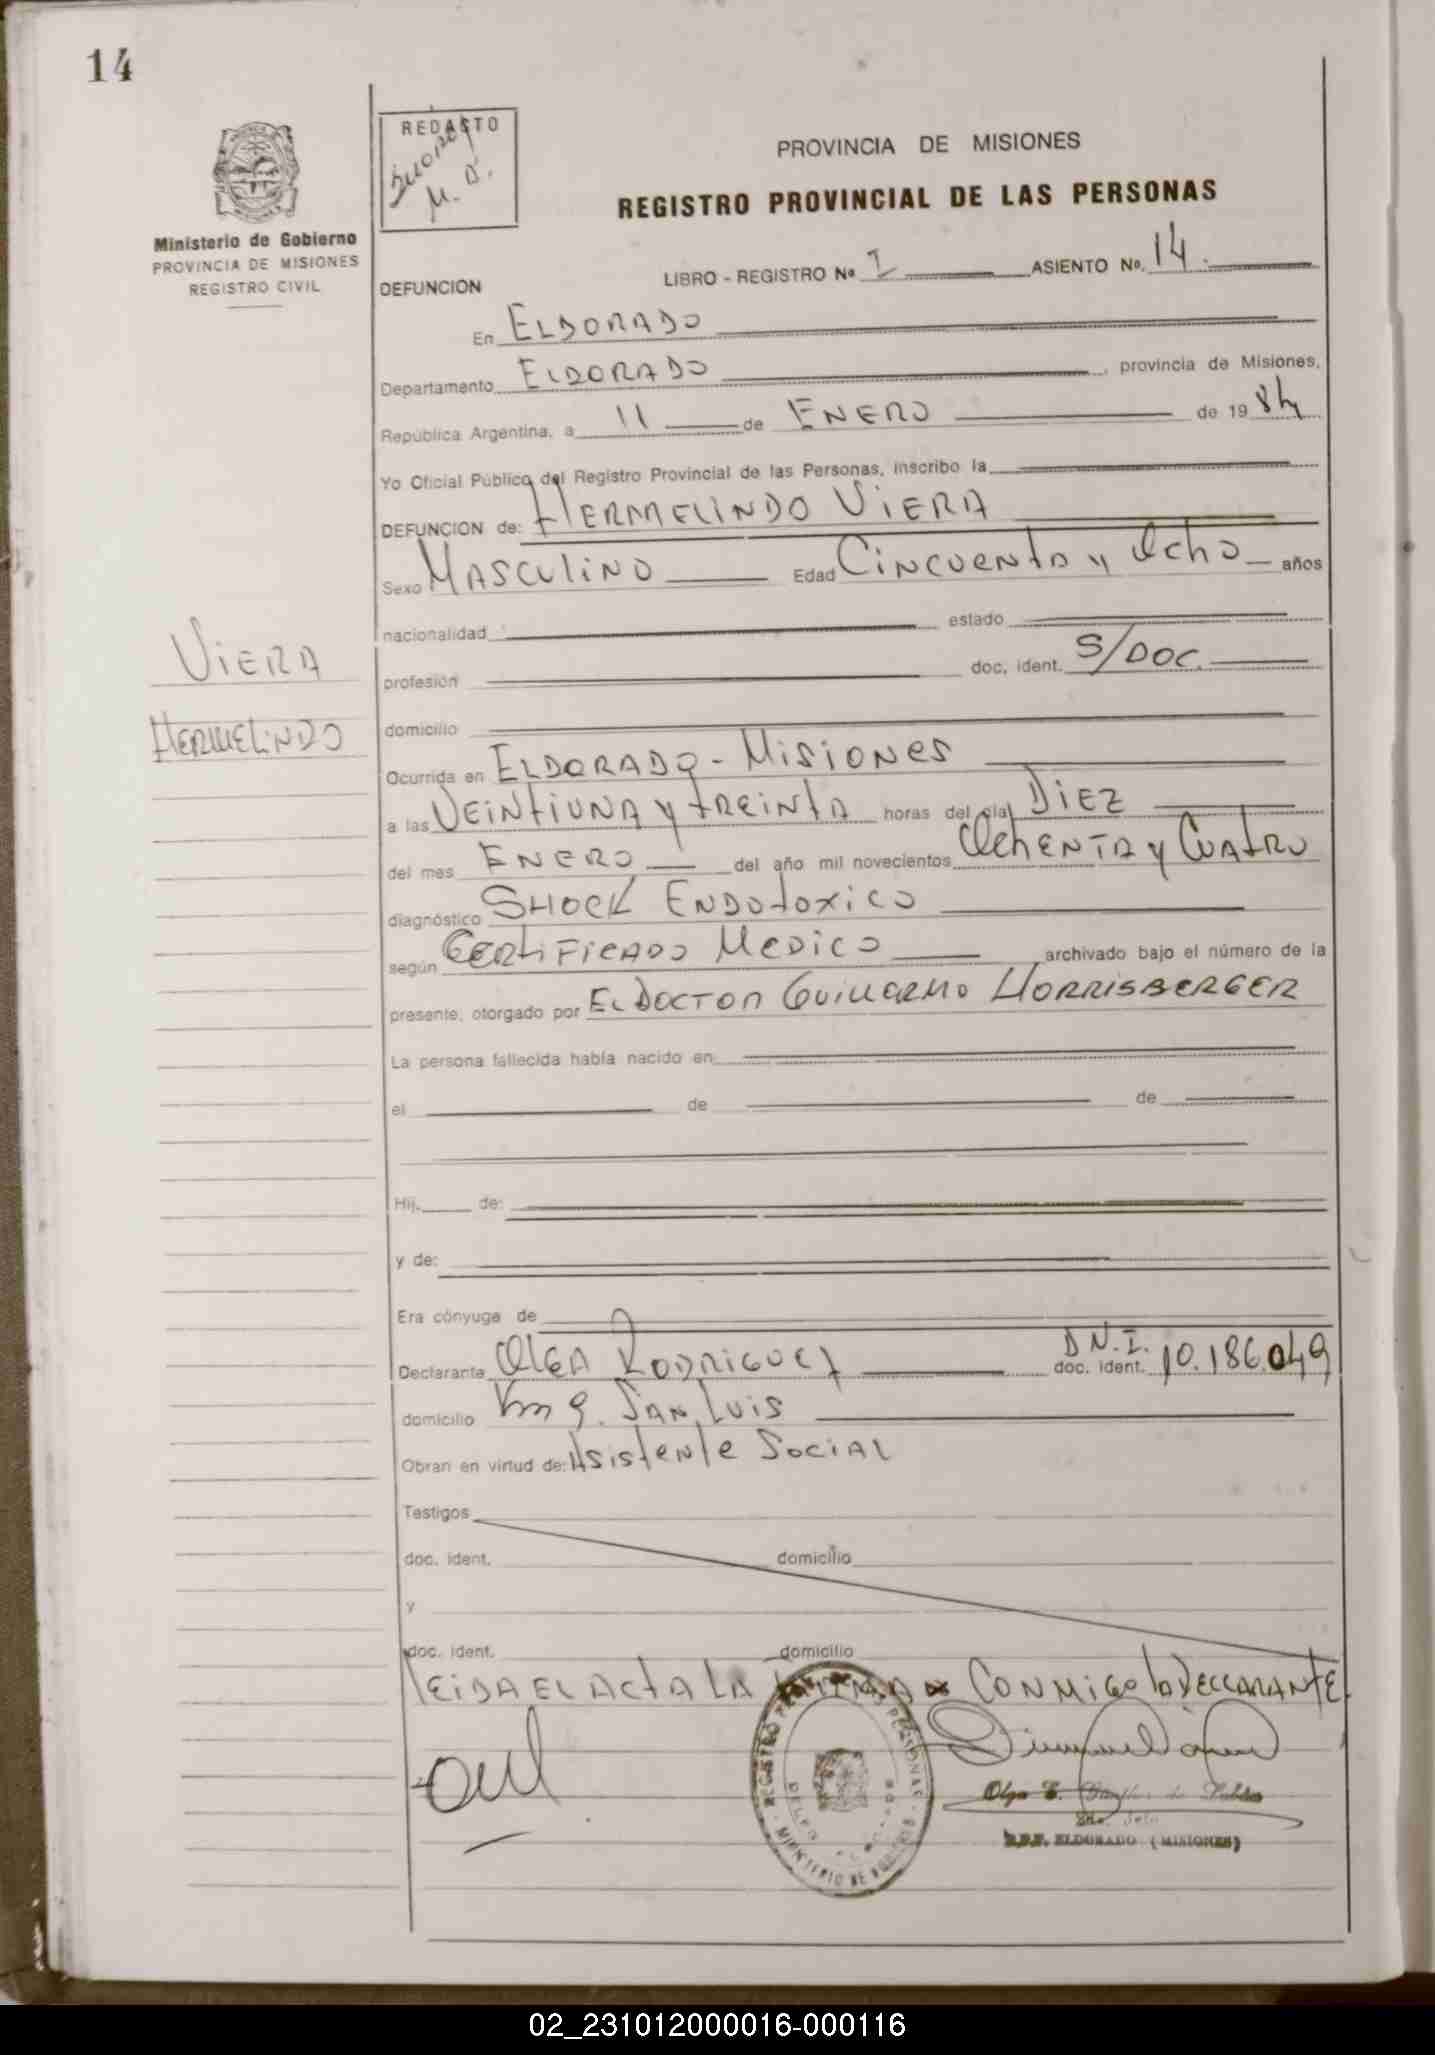 14
REDACTO
M. D.
PROVINCIA DE MISIONES
REGISTRO PROVINCIAL DE LAS PERSONAS
Ministerio de Gobierno
PROVINCIA DE MISIONES
REGISTRO CIVIL
LIBRO - REGISTRO Nº I ASIENTO Nº. 14.
DEFUNCION
En ELDORADO
Departamento ELDORADO, provincia de Misiones,
República Argentina, a 11 de ENERO de 1984
Yo Oficial Público del Registro Provincial de las Personas, inscribo la
DEFUNCION de: HERMELINDO VIERA
Sexo MASCULINO Edad CINCUENTA y Ocho años
nacionalidad estado
VIERA
profesión doc. ident. S/DOC.
HERMELINDO
domicilio
Ocurrida en ELDORADO - MISIONES
a las VEINTIUNA y treinta horas del día DIEZ
del mes ENERO del año mil novecientos OCHENTA y CUATRO
diagnóstico SHOCK ENDOTOXICO
según CERTIFICADO MEDICO archivado bajo el número de la
presente, otorgado por EL DOCTOR GUILLERMO HORRISBERGER
La persona fallecida había nacido en
el de de
Hij. de:
y de:
Era cónyuge de
Declarante OLGA RODRIGUEZ D.N.I. doc. ident. 10.186.049
domicilio Km 9. SAN LUIS
Obran en virtud de: Asistente Social
Testigos
doc. ident. domicilio
y
doc. ident. domicilio
LEIDA EL ACTA LA FIRMA CONMIGO la DECLARANTE
REGISTRO PERSONAS
MINISTERIO DE GOBIERNO
Olga E.
ELDORADO (MISIONES)
02_231012000016-000116